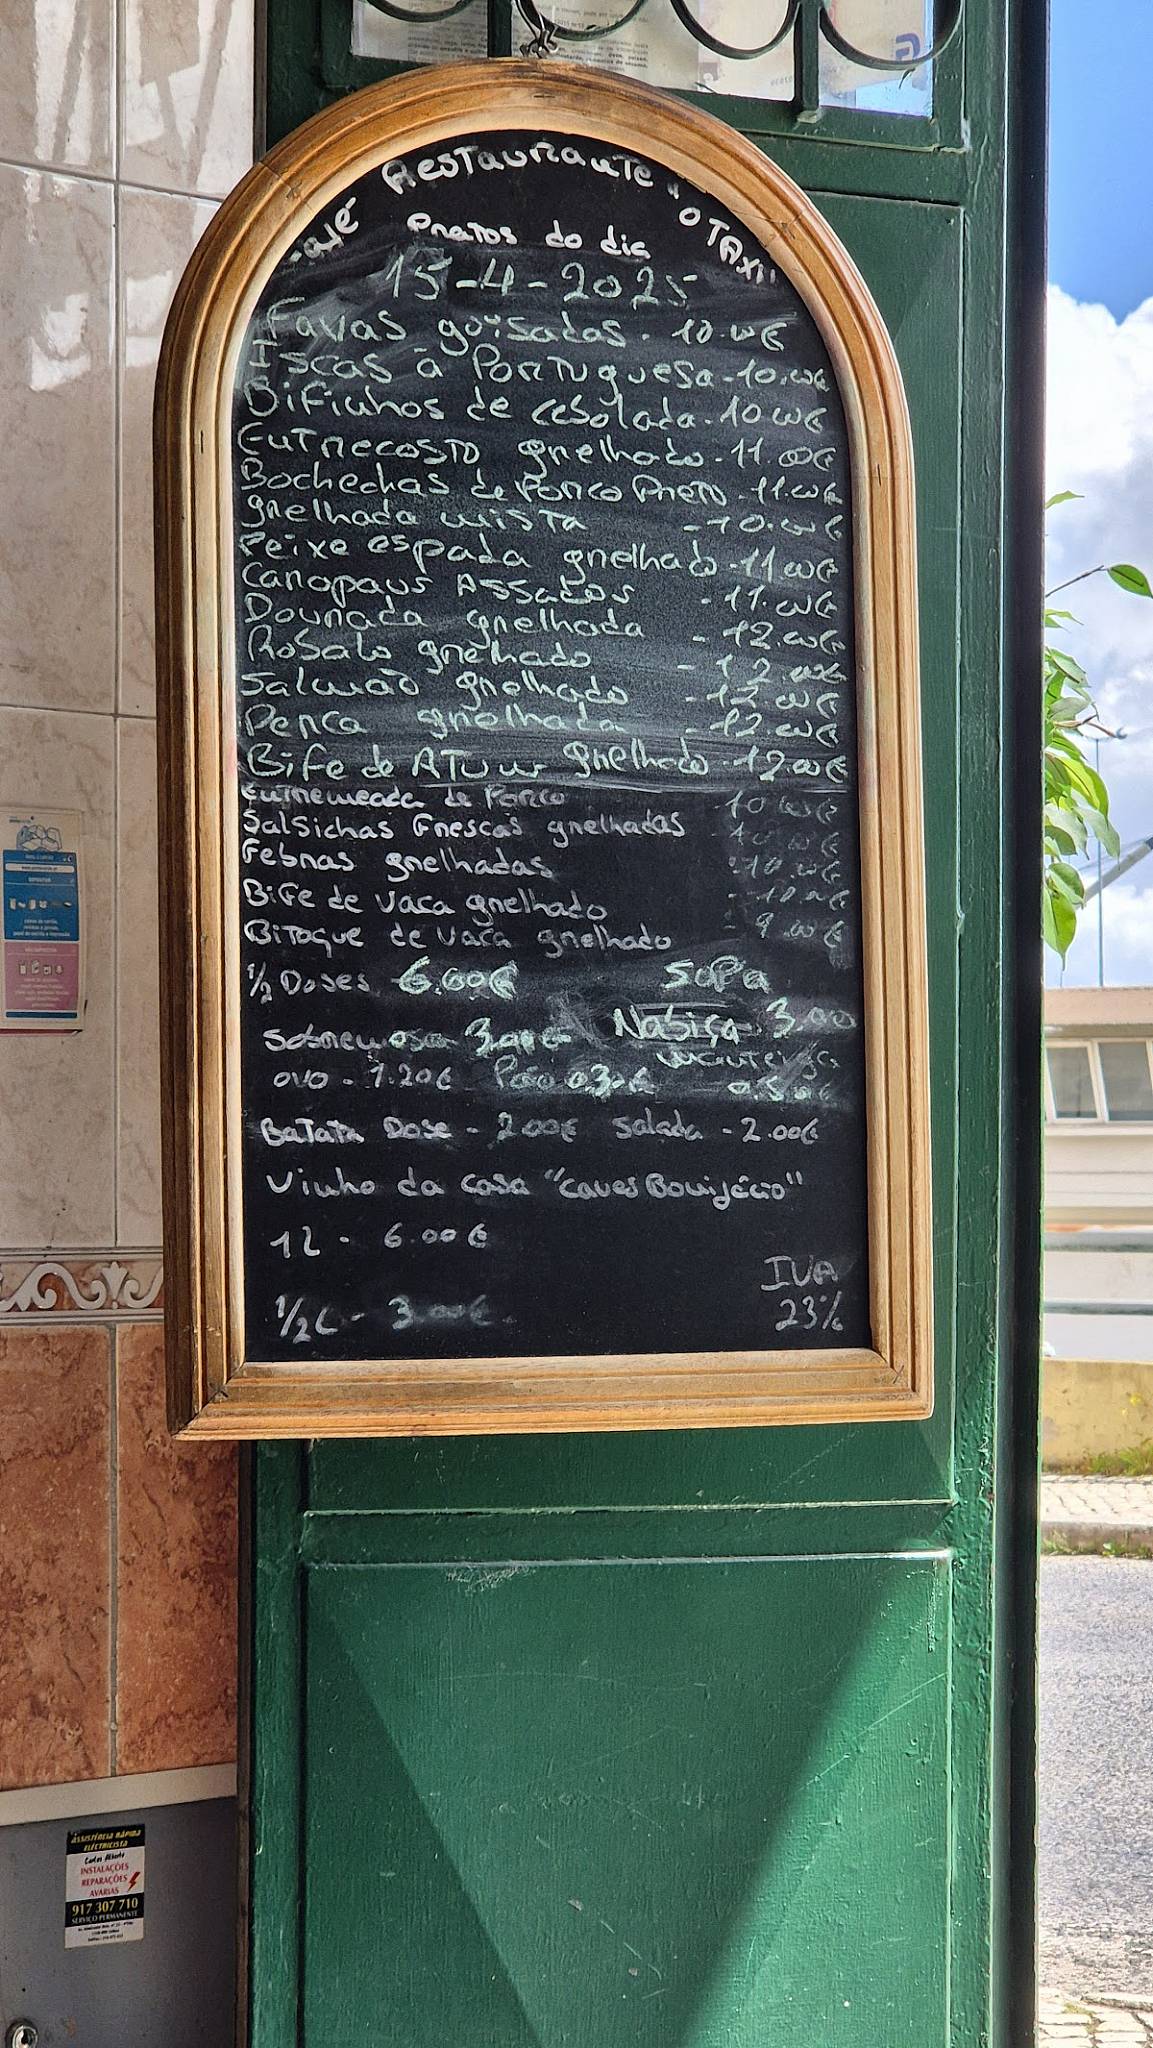 Café Restaurante "O TAXI"
Pratos do dia
15-4-2025
Favas goisadas - 10.00€
Iscas à Portuguesa - 10.00€
Bifinhos de cebolada - 10.00€
Entrecosto grelhado - 11.00€
Bochechas de Porco Preto - 11.00€
grelhada mista - 10.00€
Peixe espada grelhado - 11.00€
Carapaus Assados - 11.00€
Dourada grelhada - 12.00€
Robalo grelhado - 12.00€
Salmão grelhado - 12.00€
Perca grelhada - 12.00€
Bife de ATum grelhado - 12.00€
Entremeada de Porco 10.00€
Salsichas Frescas grelhadas 10.00€
Febras grelhadas - 10.00€
Bife de Vaca grelhado
Bitoque de Vaca grelhado - 9.00€
½ Doses 6.60€ Sopa
Nabiça 3.00
Sobremesa 3.00€
manteiga
ovo - 1.20€ Pão 0.30€ 0.50€
Batata Dose - 2.00€ Salada - 2.00€
Vinho da casa "Caves Bonifácio"
1L - 6.00€
½L - 3.00€
IVA
23%
ASSISTÊNCIA RÁPIDA
ELÉCTRICISTA
Carlos Alberto
INSTALAÇÕES
REPARAÇÕES
AVARIAS
917 307 710
SERVIÇO PERMANENTE